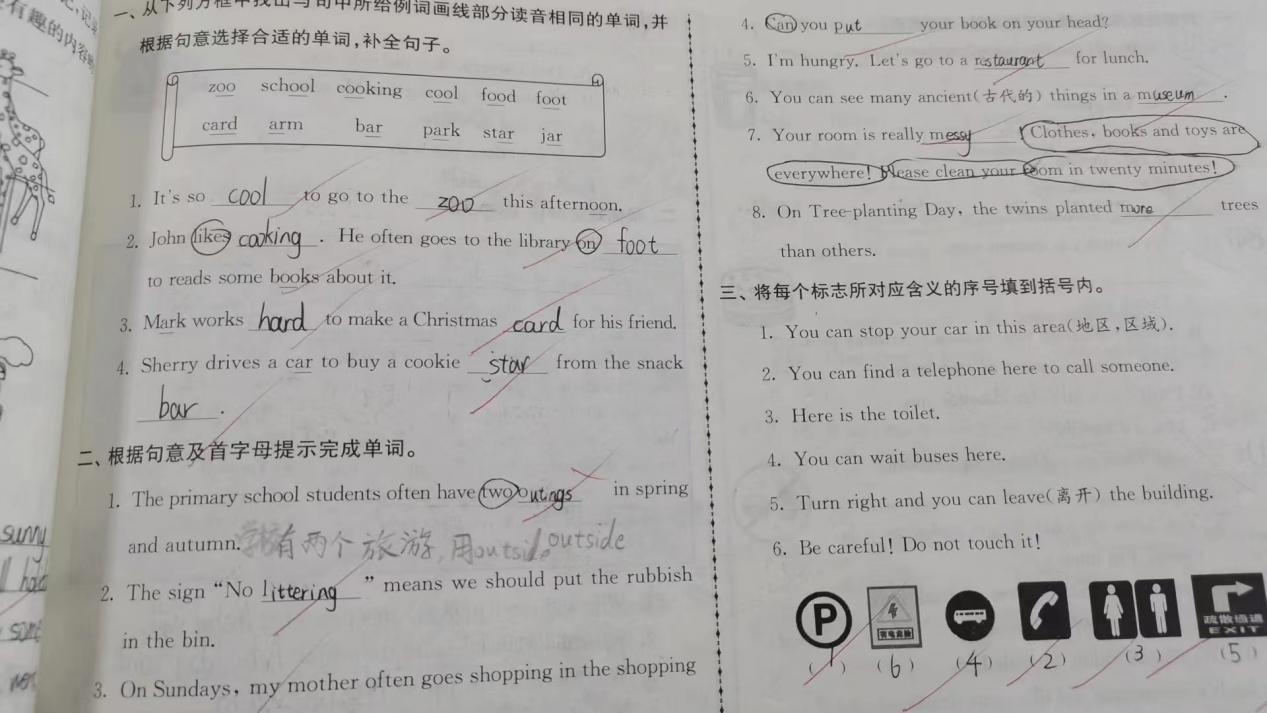 有趣的内容
一、从下列方框中找出与句中所给例词画线部分读音相同的单词,并
根据句意选择合适的单词,补全句子。
zoo school cooking cool food foot
card arm bar park star jar
1. It's so cool to go to the zoo this afternoon.
2. John likes cooking. He often goes to the library on foot
to reads some books about it.
3. Mark works hard to make a Christmas card for his friend.
4. Sherry drives a car to buy a cookie star from the snack
bar.
二、根据句意及首字母提示完成单词。
1. The primary school students often have two outings in spring
and autumn. 学校有两个旅游,用outside outside
2. The sign “No littering” means we should put the rubbish
in the bin.
3. On Sundays, my mother often goes shopping in the shopping
sunny
4. Can you put your book on your head?
5. I'm hungry. Let's go to a restaurant for lunch.
6. You can see many ancient(古代的) things in a museum.
7. Your room is really messy! Clothes, books and toys are
everywhere! Please clean your room in twenty minutes!
8. On Tree-planting Day, the twins planted more trees
than others.
三、将每个标志所对应含义的序号填到括号内。
1. You can stop your car in this area(地区,区域).
2. You can find a telephone here to call someone.
3. Here is the toilet.
4. You can wait buses here.
5. Turn right and you can leave(离开) the building.
6. Be careful! Do not touch it!
P
疏散通道
EXIT
(1) (6) (4) (2) (3) (5)